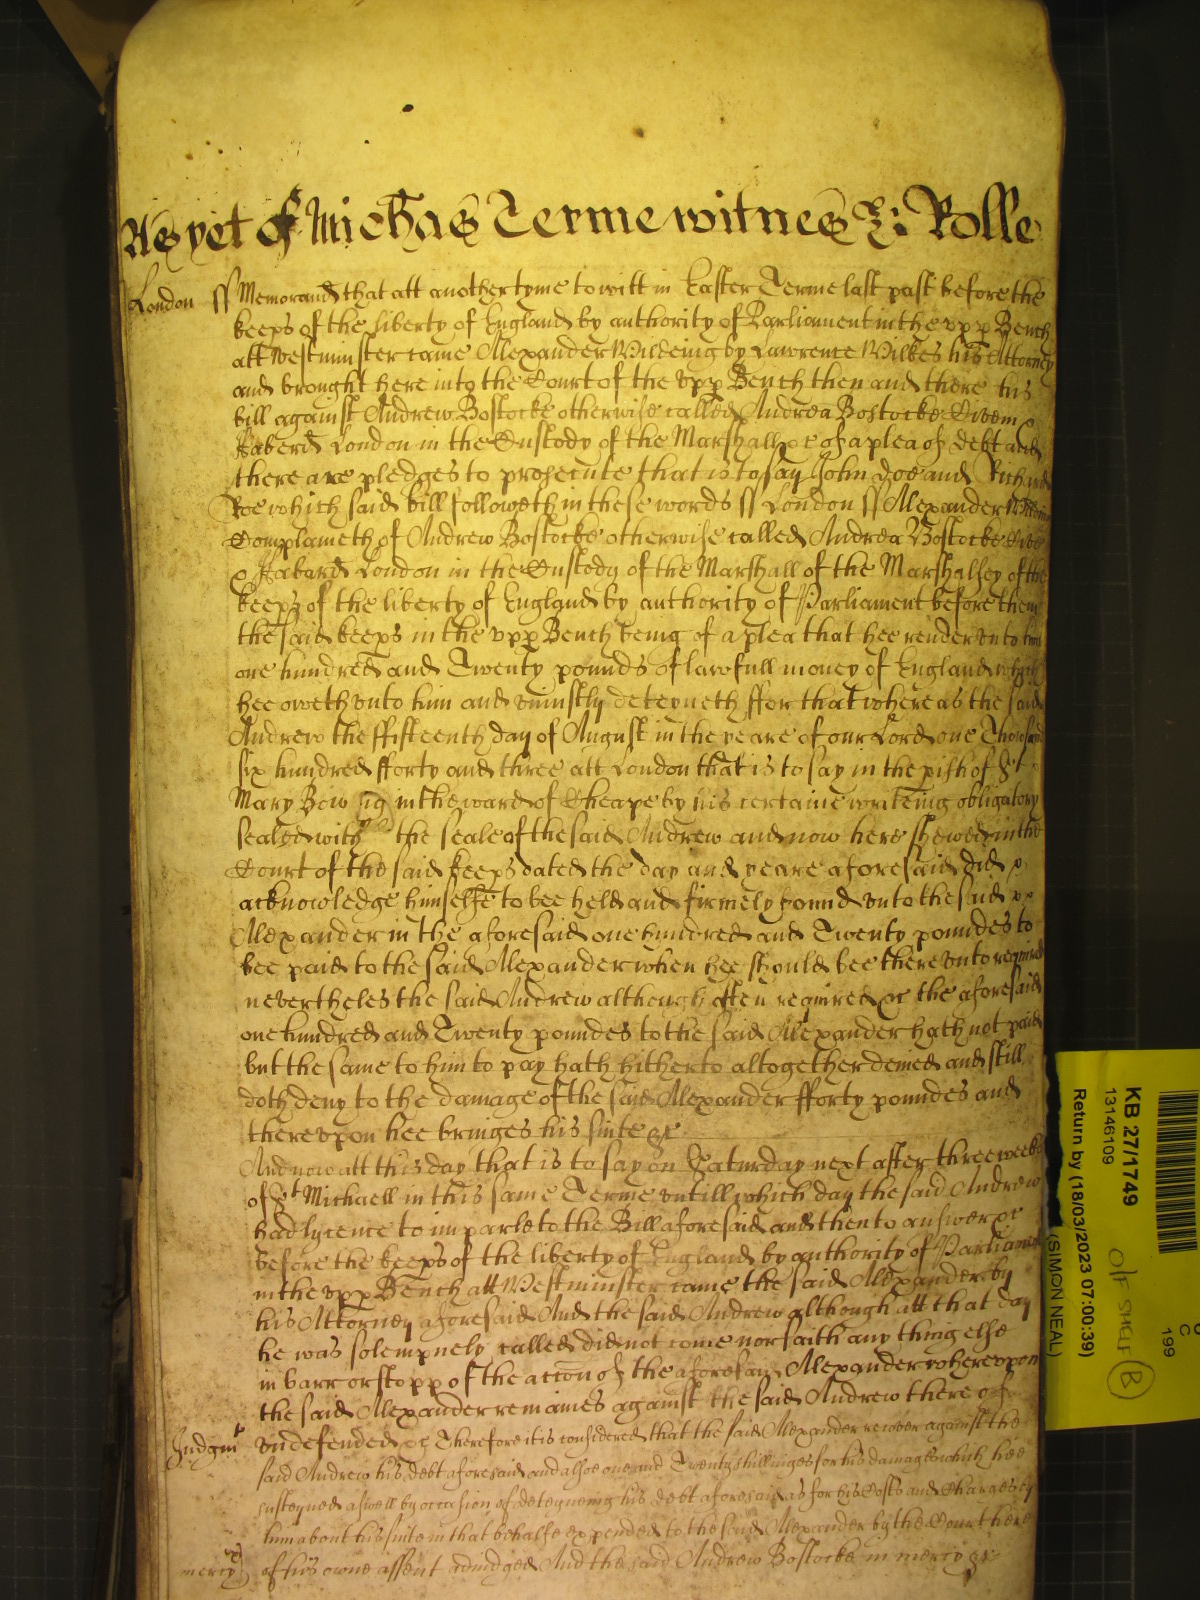 As yet of Michas Terme witnes H: Rolle
London ss Memorand that att another tyme to witt in Easter Terme last past before the
keeps of the liberty of England by authority of Parliament in the upp Bench
att Westminster came Alexander Wildeing by Lawrence Wilkes his Attorney
and brought here into the Court of the upp Bench then and there his
bill against Andrew Bostocke otherwise called Andrea Bostocke Civem
Haberd London in the Custody of the Marshall &c of a plea of debt and
there are pledges to prosecute that is to say John Doe and Richard
Roe which said bill followeth in these words ss London ss Alexander
Complaineth of Andrew Bostocke otherwise called Andrea Bostocke
Haberd London in the Custody of the Marshall of the Marshalsey of the
keeps of the liberty of England by authority of Parliament before them
the said keeps in the upp Bench being of a plea that hee render unto him
one hundred and Twenty pounds of lawfull money of England which
hee oweth unto him and uniustly deteyneth ffor that whereas the said
Andrew the ffifteenth day of August in the yeare of our Lord one Thousand
six hundred fforty and three att London that is to say in the pish of St
Mary Bow in the ward of Cheape by his certaine writeing obligatory
sealed with the seale of the said Andrew and now here shewed in the
Court of the said keeps dated the day and yeare aforesaid did
acknowledge himselfe to bee held and firmely bound unto the said
Alexander in the aforesaid one hundred and Twenty poundes to
bee paid to the said Alexander when hee should bee thereunto required
nevertheles the said Andrew although often required &c the aforesaid
one hundred and Twenty poundes to the said Alexander hath not paid
but the same to him to pay hath hitherto altogether denied and still
doth deny to the damage of the said Alexander fforty poundes and
thereupon hee bringes his suite &c
And now att this day that is to say on Saturday next after three weeks
of St Michaell in this same Terme untill which day the said Andrew
had lycence to imparle to the Bill aforesaid and then to answer &c
before the keeps of the liberty of England by authority of
in the upp Bench att Westminster came the said Alexander by
his Attorney aforesaid And the said Andrew although att that day
he was solempnely called did not come nor saith any thing else
in barr or stopp of the accon of the aforesaid Alexander whereupon
the said Alexander remaines against the said Andrew thereof
Judgmt undefended &c Therefore it is considered that the said Alexander recover against the
said Andrew his debt aforesaid and alsoe one and Twenty shillinges for his damages which hee
susteyned aswell by occasion of deteyneing his debt aforesaid as for his Costs and Charges by
him about his suite in that behalfe expended to the said Alexander by the Court here
mercy of his owne assent adiudged And the said Andrew Bostocke in mercy &c
KB 27/1749
13146109
Return by (18/03/2023 07:00:39)
(SIMON NEAL)
O/F SHELF B
C
199